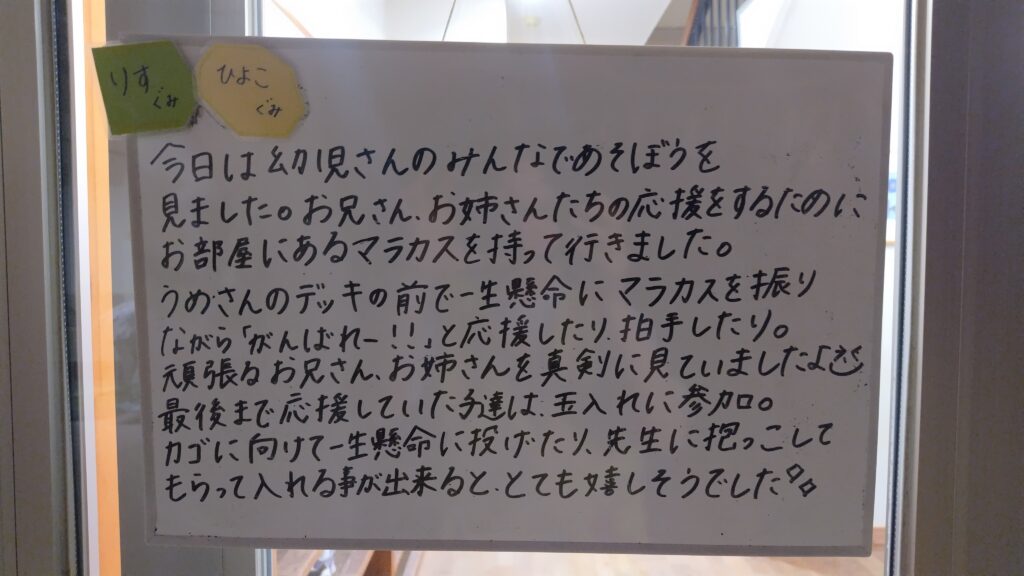 りすぐみ
ひよこぐみ
今日は幼児さんのみんなであそぼうを
見ました。お兄さん、お姉さんたちの応援をするために
お部屋にあるマラカスを持って行きました。
うめさんのデッキの前で一生懸命にマラカスを振り
ながら「がんばれー!!」と応援したり、拍手したり。
頑張るお兄さん、お姉さんを真剣に見ていましたよ
最後まで応援していた子達は、玉入れに参加。
カゴに向けて一生懸命に投げたり、先生に抱っこして
もらって入れる事が出来ると、とても嬉しそうでした